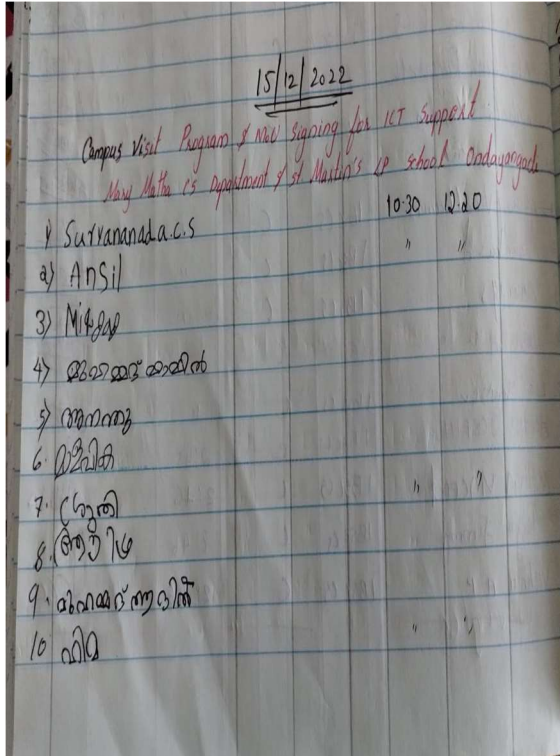 15/12/2022
Campus Visit Program & MoU Signing for ICT Support
Mary Matha CS Department & St Martin's LP School Ondayangadi
10.30 12.20
1) Suryananada.c.s
2) Ansil " "
3)
4) മുഹമ്മദ്
5) അനന്തു
6. മാളവിക
7. ശ്രുതി " "
8.
9. മുഹമ്മദ് ആദിൽ
10 ഹിമ " "